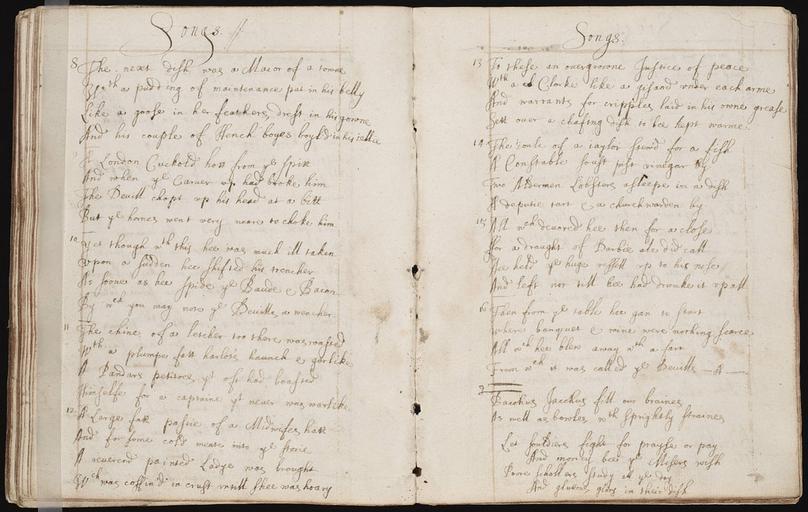 Songs
8 The next dish was a Maior of a towne
With a pudding of maintenance put in his belly
Like a goose in her feathers, drest in his gowne
And his couple of Hench boyes boyld in his iellie
A London Cuckold hott from ye spitt
And when ye Carver up had broke him
The Devill chopt up his head at a bitt
But ye hornes went very neere to choke him
10 Yet though wth this hee was much ill taken
Upon a sudden hee shifted his trencher
As soone as hee spide ye Baude & Bacon
By wch you may note ye Deuills a wencher
11 The chine of a letcher too there was roasted
Wth a plumpe fatt harlots haunch & garlike
A Pandars petitoes yt oft had boasted
Himselfe for a captaine yt never was warlike
12 A Large fatt pastie of a Midwifes hott
And for some cold meate into ye
A reverend painted Lady was brought
Wch was coffin'd in crust untill shee was hoary
Songs
13 To these an overgrowne Justice of peace
Wth a Clarke like a gisard under each arme
And warrants for cripples laid in his owne grease
Sett over a chafing dish to bee kept warme
14 The ioule of a taylor stew'd for a fish
A Constable soust wth vinegar by
Two Aldermen Lobsters asleepe in a dish
A deputie tart & a churchwarden by
15 All wch devored hee then for a close
For a draught of Darbie ale did call
Hee held ye huge vessell up to his nose
And left not till hee had drunke it up all
16 Then from ye table hee gan to start
Where banquet & wine were nothing scarce
All wch hee blew away wth a fart
From wch it was called ye Deuills — A —
Bacchus Jacchus fill our braines
As well as bowles wth sprightly straines
Let souldiers fight for prayse or pay
And money bee ye Misers wish
Poore schollers study all ye day
And gluttons glory in their dish